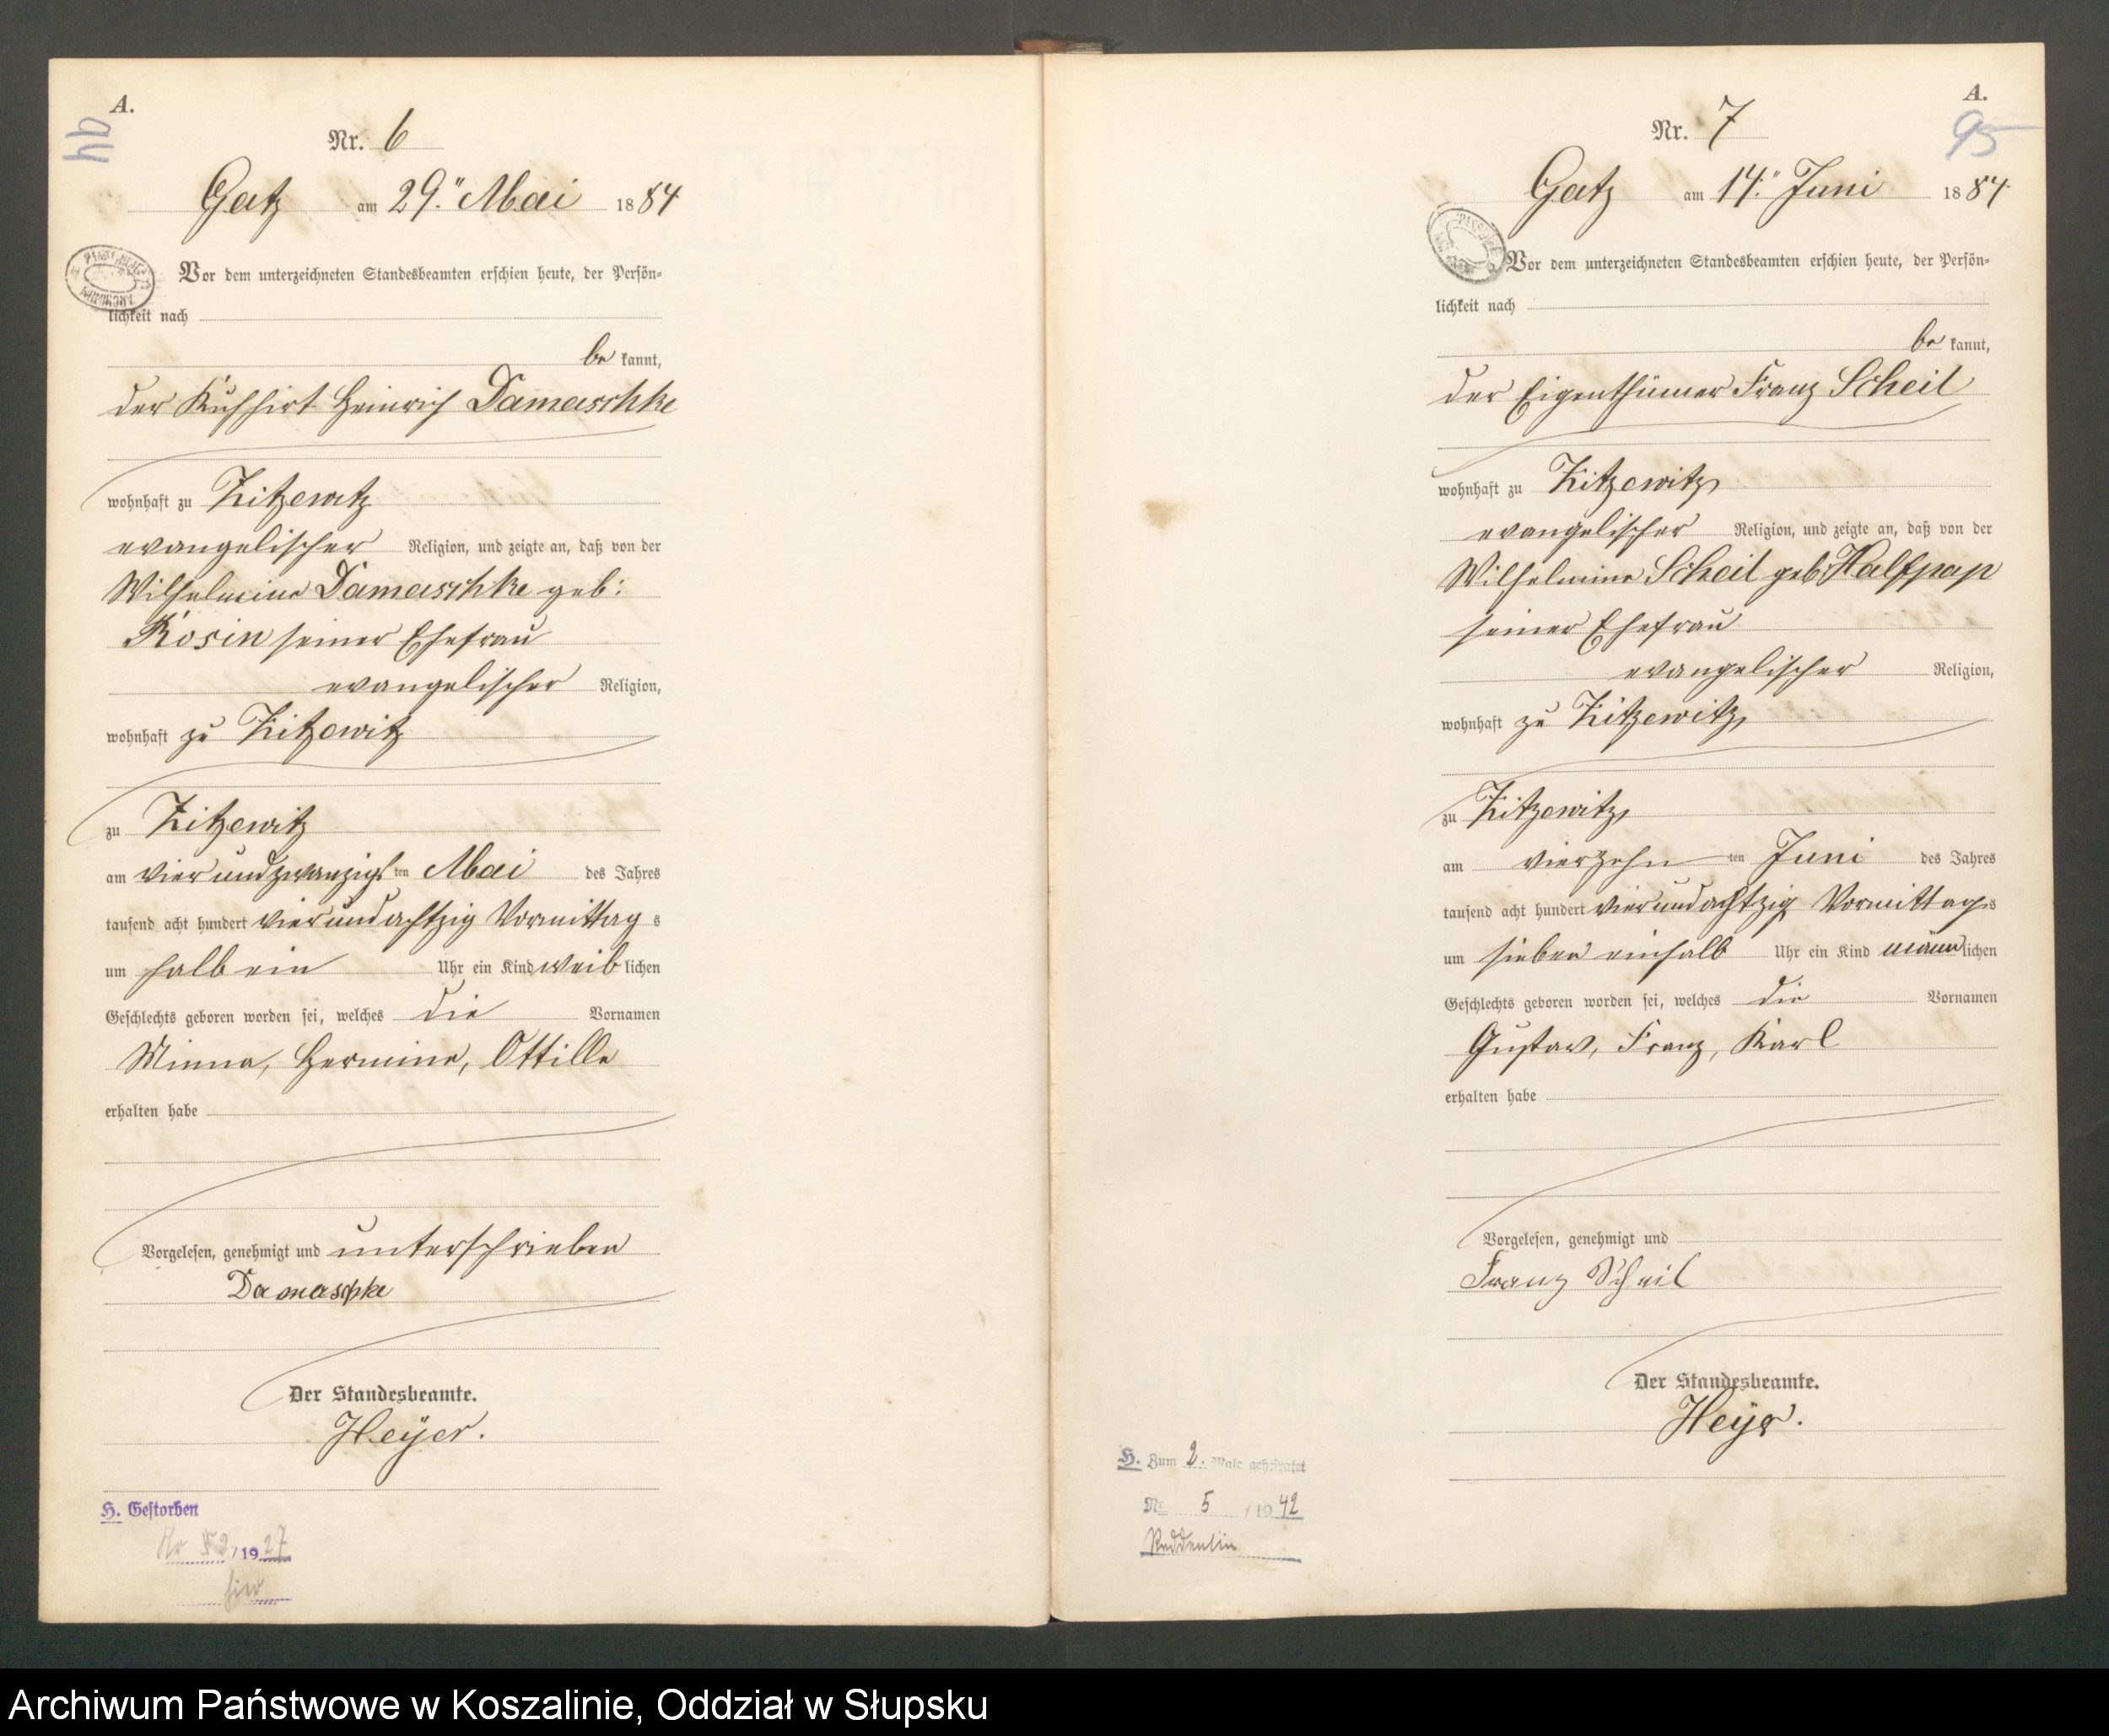 A.
Nr. 6
Gatz am 29. Mai 1884
Vor dem unterzeichneten Standesbeamten erschien heute, der Persön=
lichkeit nach
be kannt,
der Kuhhirt Heinrich Damaschke
wohnhaft zu Zitzewitz
evangelischer Religion, und zeigte an, daß von der
Wilhelmine Damaschke geb:
Rosin seiner Ehefrau
evangelischer Religion,
wohnhaft zu Zitzewitz
zu Zitzewitz
am vierundzwanzigsten Mai des Jahres
tausend acht hundert vierundachtzig Vormittag s
um halb ein Uhr ein Kind weib lichen
Geschlechts geboren worden sei, welches die Vornamen
Minna, Hermine, Ottille
erhalten habe
Vorgelesen, genehmigt und unterschrieben
Damaschke
Der Standesbeamte.
Heÿer.
H. Gestorben
Nr 2/1927
hier
A.
95
Nr. 7
Gatz am 14. Juni 1884
Vor dem unterzeichneten Standesbeamten erschien heute, der Persön=
lichkeit nach
be kannt,
der Eigenthümer Franz Scheil
wohnhaft zu Zitzewitz
evangelischer Religion, und zeigte an, daß von der
Wilhelmine Scheil geb. Halfpap
seiner Ehefrau
evangelischer Religion,
wohnhaft zu Zitzewitz
zu Zitzewitz
am vierzehn ten Juni des Jahres
tausend acht hundert vierundachtzig Vormittags
um sieben einhalb Uhr ein Kind männ lichen
Geschlechts geboren worden sei, welches die Vornamen
Gustav, Franz, Karl
erhalten habe
Vorgelesen, genehmigt und
Franz Scheil
Der Standesbeamte.
Heÿer.
H. Zum 2. Male geheiratet
Nr. 5 / 1942
Reddentin
Archiwum Państwowe w Koszalinie, Oddział w Słupsku